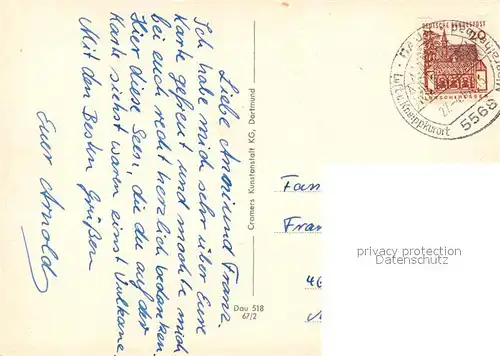 Liebe Anni und Franz.
Ich habe mich sehr über Eure
Karte gefreut und möchte mich
bei euch recht herzlich bedanken.
Hier diese Seen, die du auf der
Karte siehst waren einst Vulkane.
Mit den Besten Grüßen
Euer Arnold
Cramers Kunstanstalt KG, Dortmund
Dau 518
67/2
DEUTSCHE BUNDESPOST
Kneippkurort
5568
Fam
Fran
privacy protection
watermark